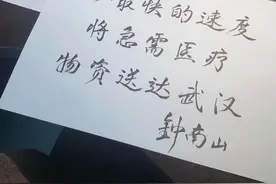 最快的速度
将急需医疗
物资送达武汉
钟南山